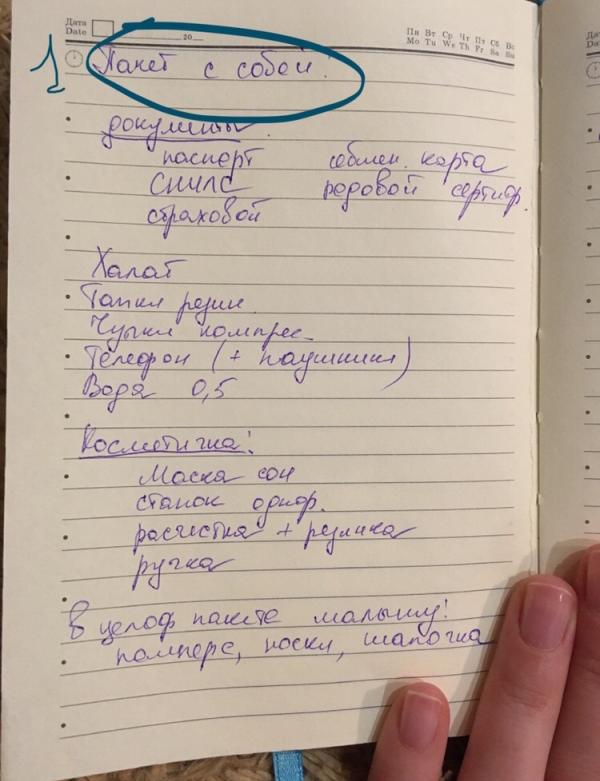 Дата
Date 20
Пн Вт Ср Чт Пт Сб Вс
Mo Tu We Th Fr Sa Su
1 Пакет с собой!
документы
паспорт обмен. карта
СНИЛС родовой сертиф.
страховой
Халат
Тапки резин.
Чулки компрес.
Телефон (+ наушники)
Вода 0,5
Косметичка!
Маска сон
станок однор.
расчестка + резинка
ручка
В целоф пакете малышу!
памперс, носки, шапочка